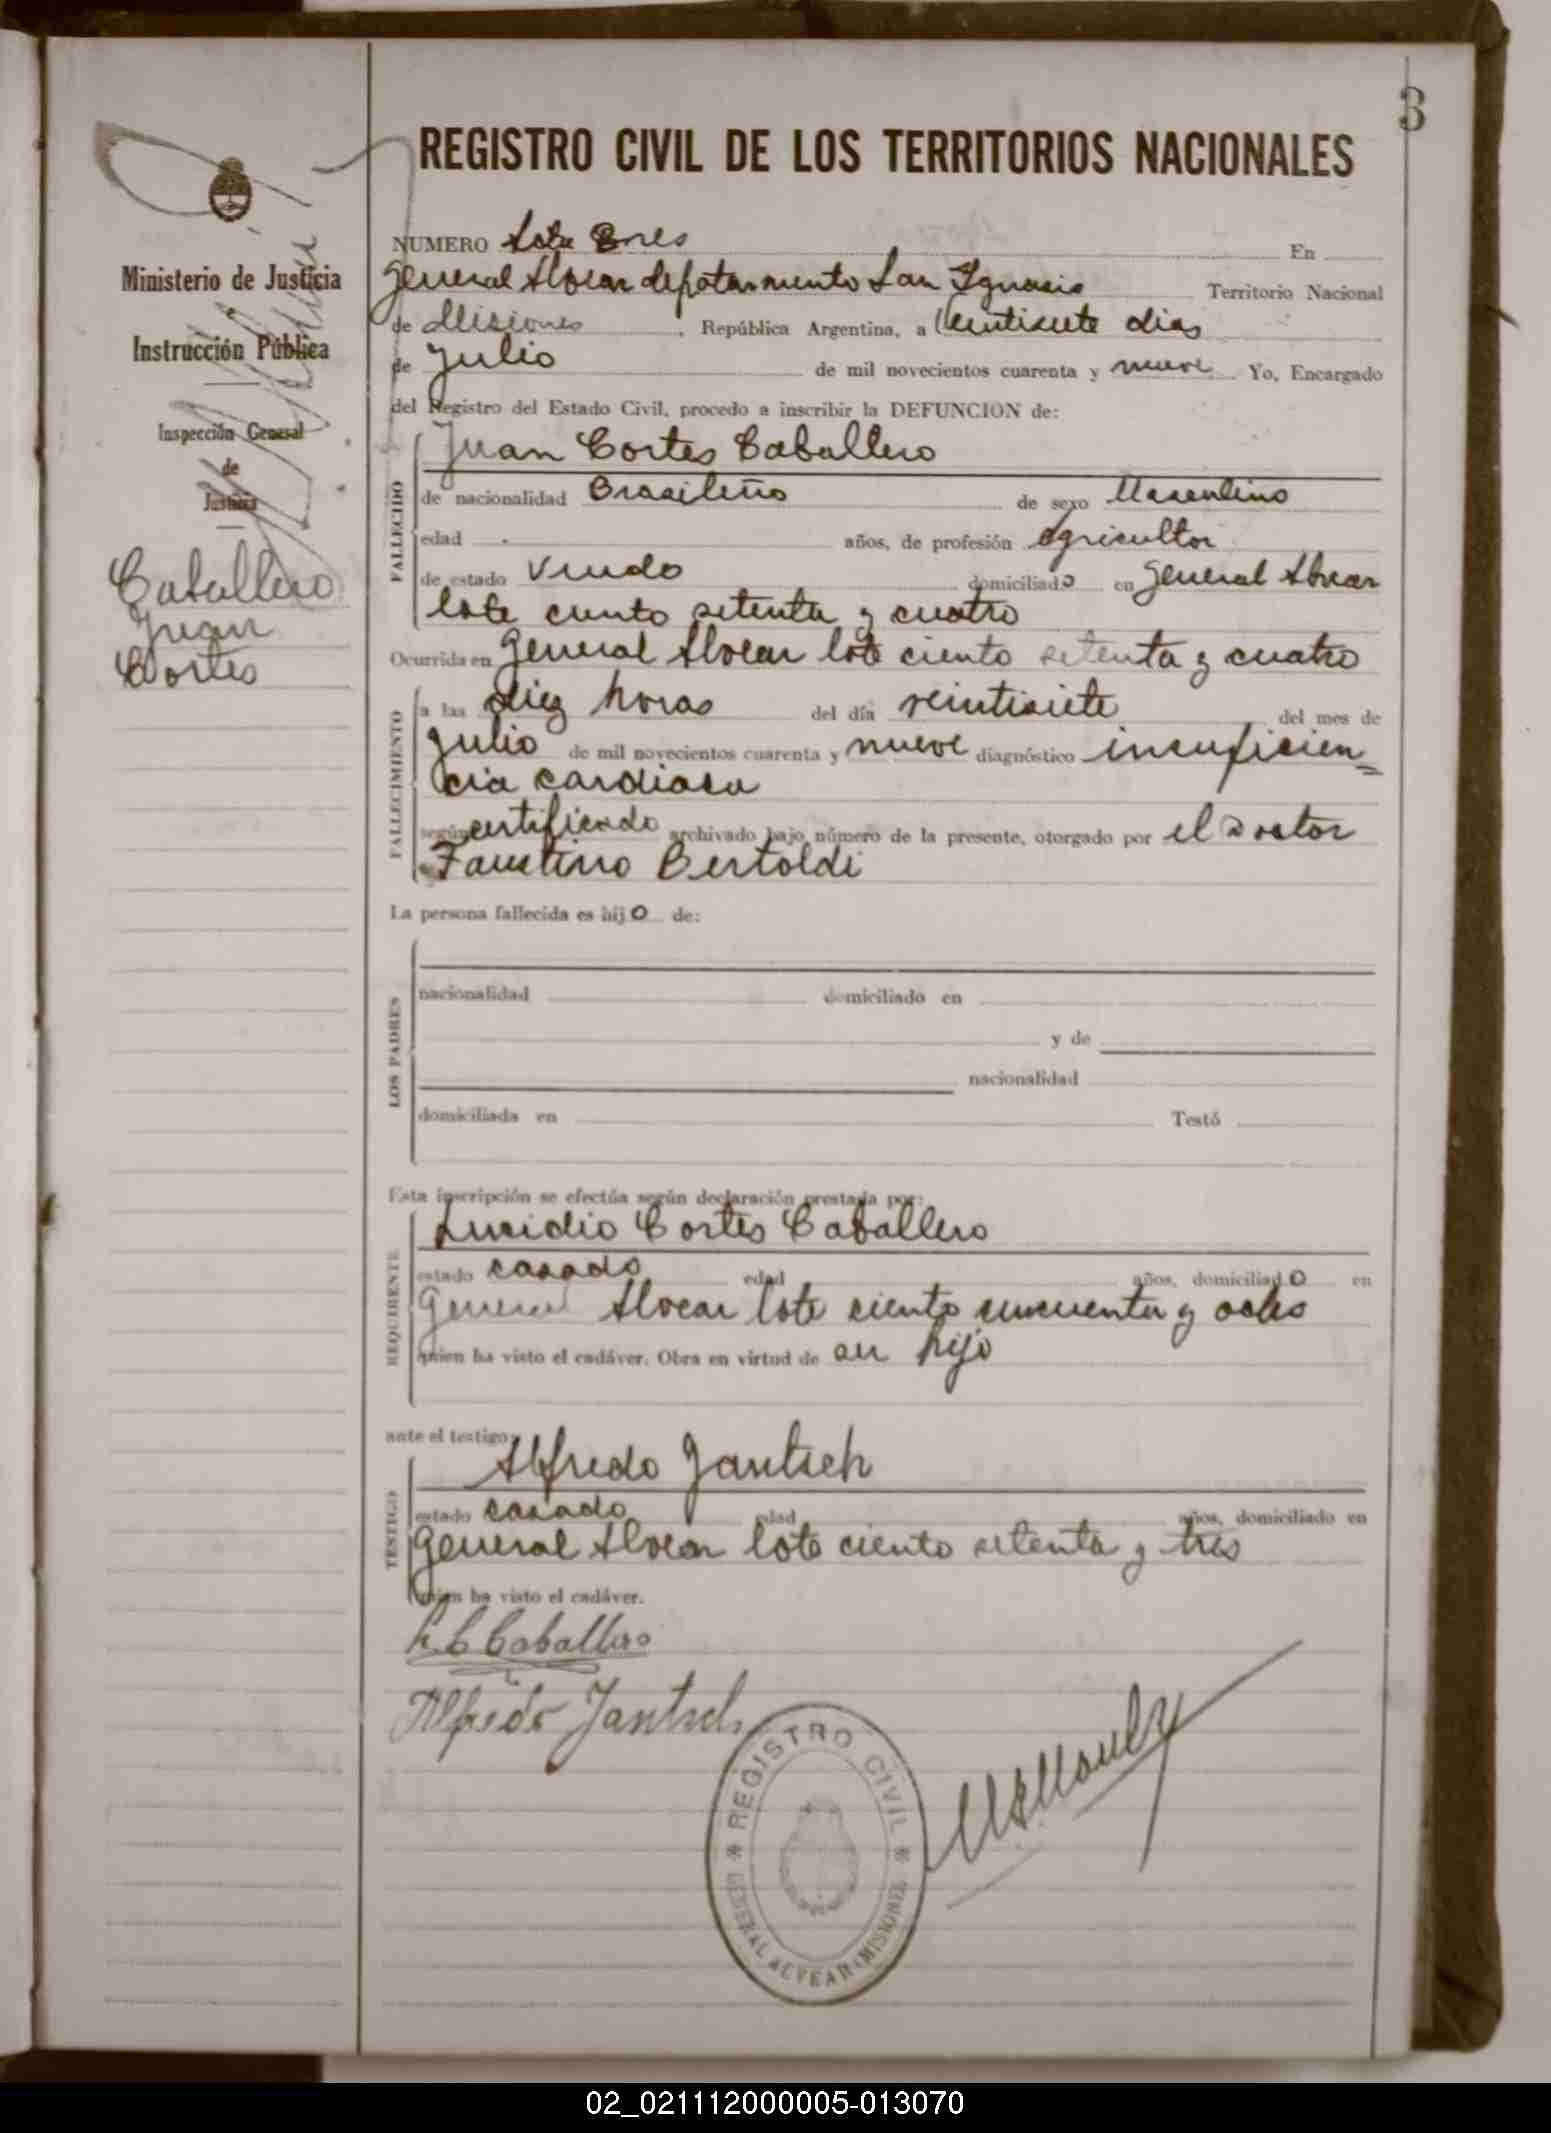 3
REGISTRO CIVIL DE LOS TERRITORIOS NACIONALES
Ministerio de Justicia
e
Instrucción Pública
Inspección General
de
Justicia
Caballero
Juan
Cortes
NUMERO En
General Alvear departamento San Ignacio Territorio Nacional
de Misiones , República Argentina, a Veintisiete dias
de Julio de mil novecientos cuarenta y nueve Yo, Encargado
del Registro del Estado Civil, procedo a inscribir la DEFUNCION de:
FALLECIDO
Juan Cortes Caballero
de nacionalidad Brasileño de sexo Masculino
edad años, de profesión Agricultor
de estado Viudo domiciliado en General Alvear
lote ciento setenta y cuatro
Ocurrida en General Alvear lote ciento setenta y cuatro
FALLECIMIENTO
a las diez horas del día veintisiete del mes de
Julio de mil novecientos cuarenta y nueve diagnóstico insuficien=
cia cardiaca
según certificado archivado bajo número de la presente, otorgado por el Doctor
Faustino Bertoldi
La persona fallecida es hijo de:
LOS PADRES
nacionalidad domiciliado en
y de
nacionalidad
domiciliada en Testó
Esta inscripción se efectúa según declaración prestada por:
REQUIRENTE
Lucidio Cortes Caballero
estado casado edad años, domiciliado en
General Alvear lote ciento cincuenta y ocho
quien ha visto el cadáver. Obra en virtud de su hijo
ante el testigo:
TESTIGO
Alfredo Jantsch
estado casado edad años, domiciliado en
General Alvear lote ciento setenta y tres
quien ha visto el cadáver.
L. C. Caballero
Alfredo Jantsch
REGISTRO CIVIL
GENERAL ALVEAR (MISIONES)
02_021112000005-013070